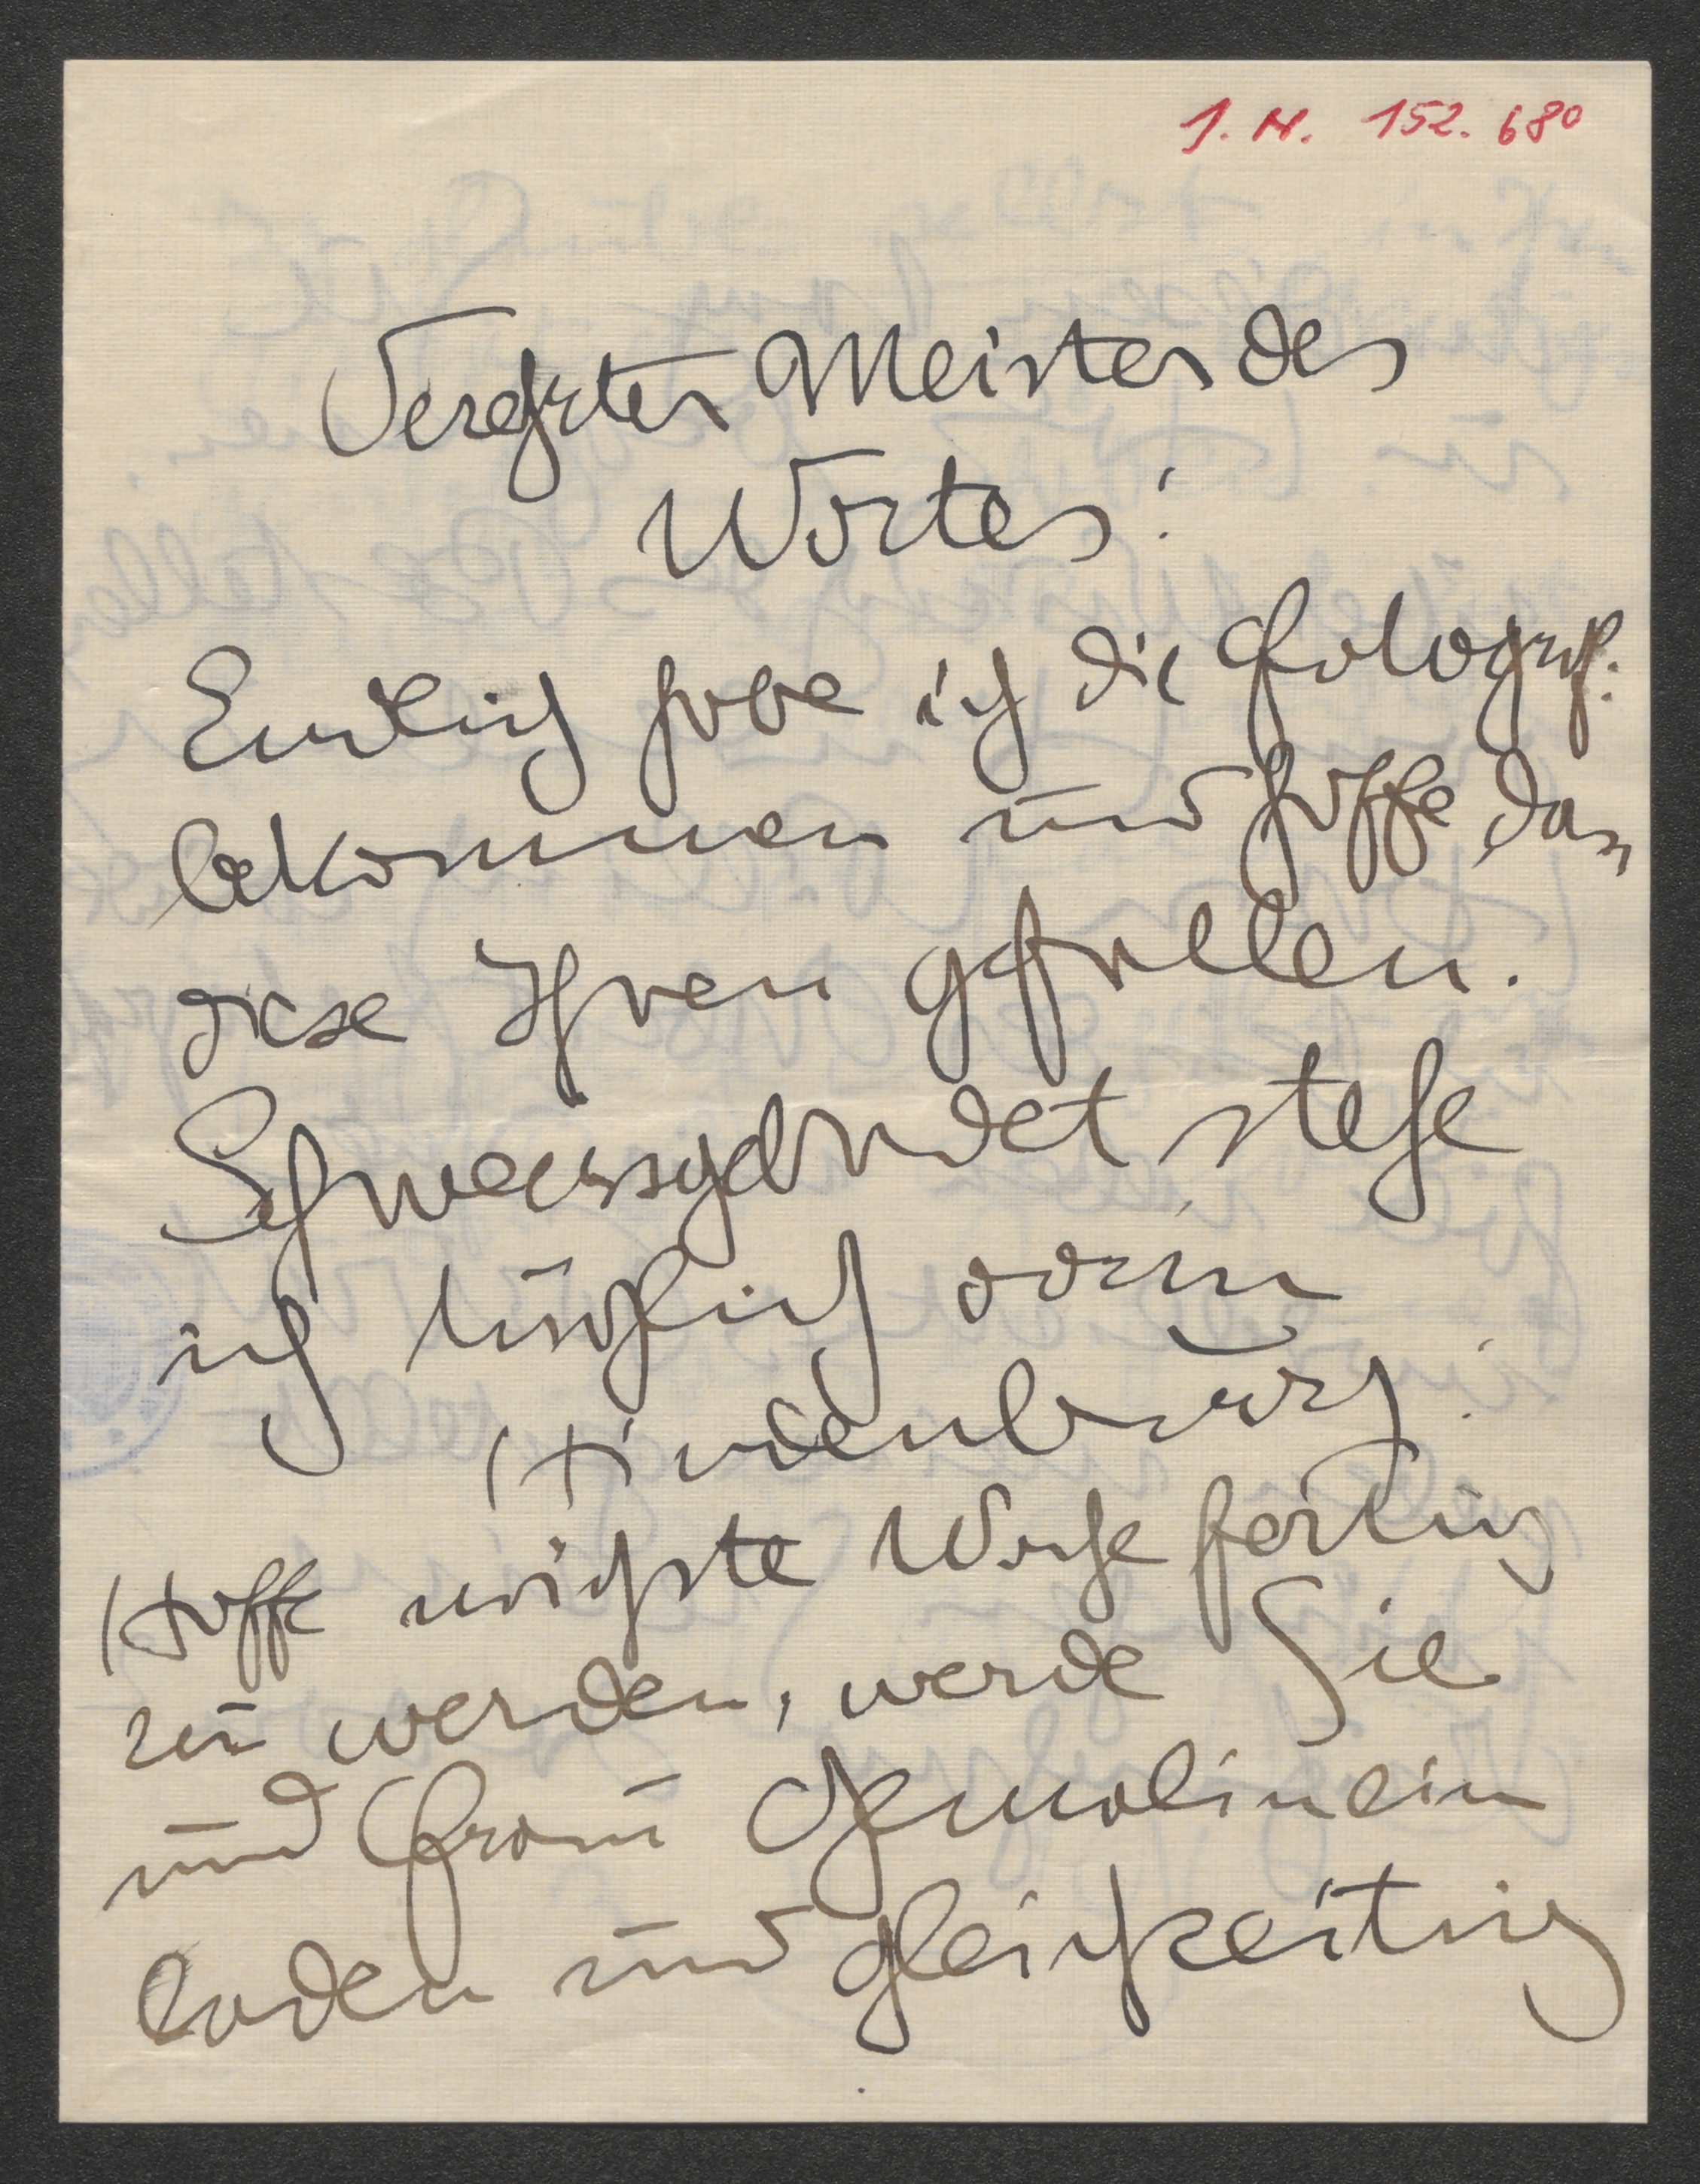 J. N. 152.680
Verehrter Meister des
Wortes!
Endlich habe ich die Fotogrf.
bekommen und hoffe, dass
diese Ihnen gefallen.
Schweissgebadet stehe
ich täglich beim
Hindenburg.
Hoffe nächste Woche fertig
zu werden, werde Sie
und Frau Gemalin ein
laden und gleichzeitig